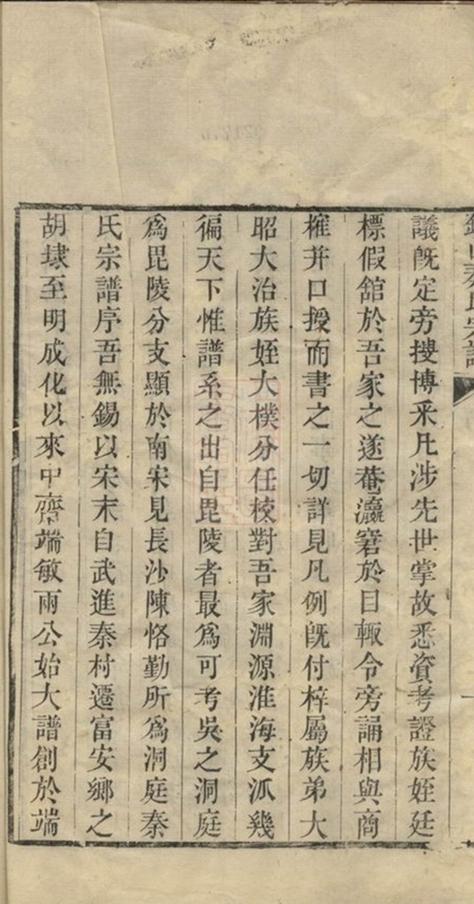 議旣定旁搜博采凡涉先世掌故悉資考證族姪廷
標假舘於吾家之遂菴瀛窘於目輙令旁誦相與商
搉幷口授而書之一切詳見凡例旣付梓屬族弟大
昭大治族姪大樸分任校對吾家淵源淮海支𣲖幾
徧天下惟譜系之出自毘陵者最爲可考吳之洞庭
爲毘陵分支顯於南宋見長沙陳恪勤所爲洞庭秦
氏宗譜序吾無錫以宋末自武進秦村遷富安鄉之
胡埭至明成化以來中齋端敏兩公始大譜創於端